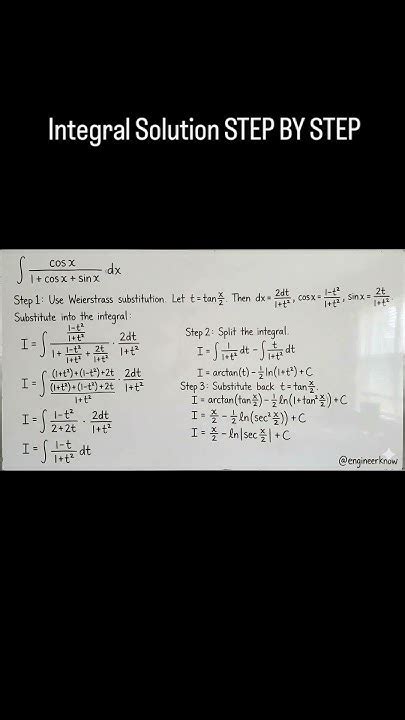 Integral Solution STEP BY STEP
∫ cos x / (1 + cos x + sin x) · dx
Step 1: Use Weierstrass substitution. Let t = tan x/2. Then dx = 2dt/(1+t²), cos x = (1-t²)/(1+t²), sin x = 2t/(1+t²).
Substitute into the integral:
I = ∫ ((1-t²)/(1+t²)) / (1 + (1-t²)/(1+t²) + 2t/(1+t²)) · 2dt/(1+t²)
I = ∫ ((1+t²)+(1-t²)+2t) / (((1+t²)+(1-t²)+2t)/(1+t²)) · 2dt/(1+t²)
I = ∫ (1-t²)/(2+2t) · 2dt/(1+t²)
I = ∫ (1-t)/(1+t²) dt
Step 2: Split the integral.
I = ∫ 1/(1+t²) dt - ∫ t/(1+t²) dt
I = arctan(t) - ½ ln(1+t²) + C
Step 3: Substitute back t = tan x/2.
I = arctan(tan x/2) - ½ ln(1+tan² x/2) + C
I = x/2 - ½ ln(sec² x/2)) + C
I = x/2 - ln|sec x/2| + C
@engineerknow